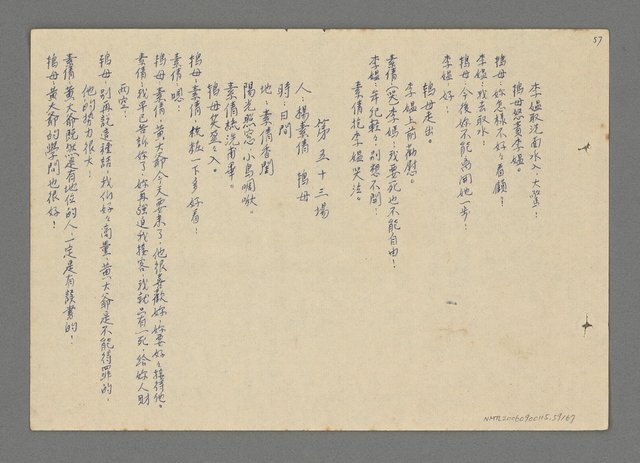 57
李媼取洗面水入,大驚!
鴇母怒責李媼。
鴇母:妳怎樣不好々看顧!
李媼:我去取水!
鴇母:今後妳不能離開她一步!
李媼:好!
鴇母走出。
李媼上前勸慰。
素倩:(哭)李媽!我要死也不能自由!
李媼:年紀輕々,別想不開!
素倩抱李媼哭泣。
第五十三場
人:楊素倩 鴇母
時:日間
地:素倩香閨
陽光照窓,小鳥啁啾。
素倩梳洗而畢。
鴇母笑盈々入。
鴇母:素倩!梳粧一下多好看!
素倩:嗯!
鴇母:素倩!黃大爺今天要來了,他很喜歡妳,妳要好々接待他。
素倩:我早已告訴你了,妳再強迫我接客,我就只有一死,給妳人財
兩空!
鴇母:別再說這種話!我們好々商量,黃大爺是不能得罪的,
他的勢力很大!
素倩:黃大爺既然是有地位的人,一定是有讀書的!
鴇母:黃大爺的學問也很好!
NMTL20060900115.59/67